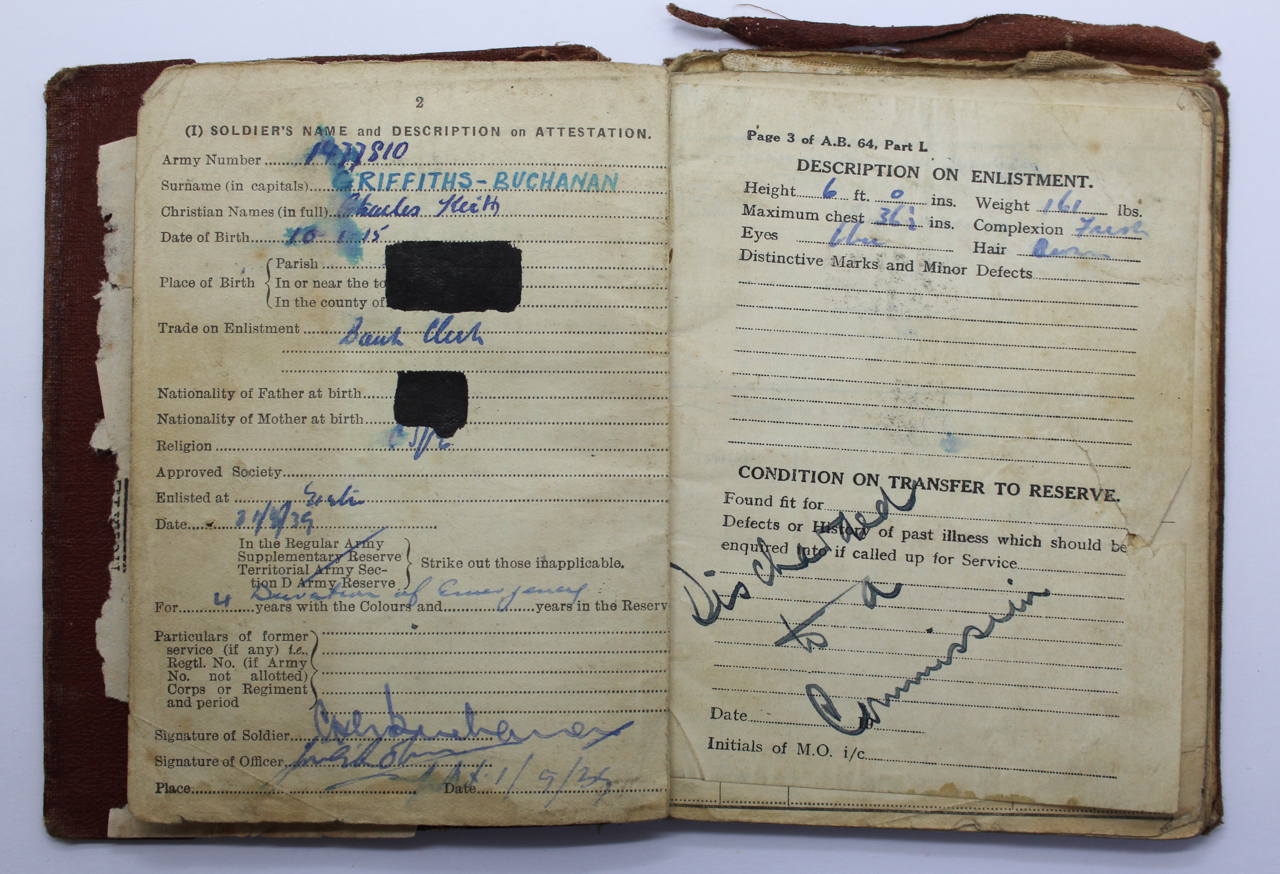 2
(I) SOLDIER'S NAME and DESCRIPTION on ATTESTATION.
Army Number 1477810
Surname (in capitals) GRIFFITHS-BUCHANAN
Christian Names (in full) Charles Keith
Date of Birth 10-1-15
Place of Birth
Parish
In or near the to
In the county of
Trade on Enlistment Bank Clerk
Nationality of Father at birth
Nationality of Mother at birth
Religion
Approved Society
Enlisted at
Date /39
In the Regular Army
Supplementary Reserve
Territorial Army Sec-
tion D Army Reserve
Strike out those inapplicable.
Duration of Emergency
For 4 years with the Colours and years in the Reserv
Particulars of former
service (if any) i.e.,
Regtl. No. (if Army
No. not allotted)
Corps or Regiment
and period
Signature of Soldier
Signature of Officer
Place Date 1/9/39
Page 3 of A.B. 64, Part I.
DESCRIPTION ON ENLISTMENT.
Height 6 ft. 0 ins. Weight 161 lbs.
Maximum chest 36½ ins. Complexion Fresh
Eyes Blue Hair
Distinctive Marks and Minor Defects
CONDITION ON TRANSFER TO RESERVE.
Found fit for
Defects or History of past illness which should be
enquired into if called up for Service
Discharged
to a
Commission
Date 19
Initials of M.O. i/c